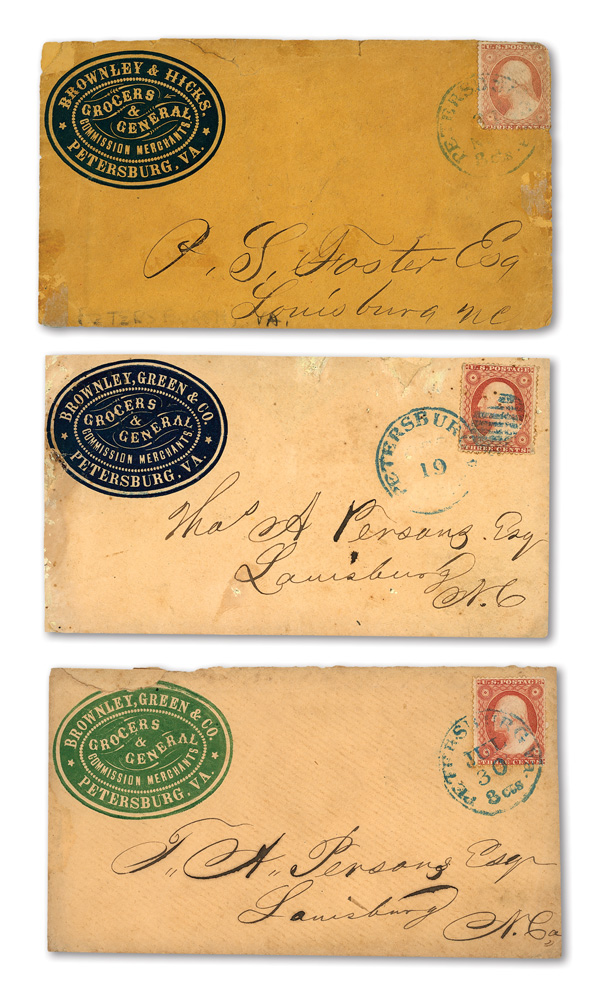 BROWNLEY & HICKS
GROCERS
&
GENERAL
COMMISSION MERCHANTS
PETERSBURG, VA.
U.S. POSTAGE
THREE CENTS
PETERSBURG
3 cts
P. S. Foster Esq
Louisburg NC
PETERSBURG VA.
BROWNLEY, GREEN & CO.
GROCERS
&
GENERAL
COMMISSION MERCHANTS
PETERSBURG, VA.
U.S. POSTAGE
THREE CENTS
PETERSBURG
19
Thos A Persons. Esq
Louisburg
N.C
BROWNLEY, GREEN & CO.
GROCERS
&
GENERAL
COMMISSION MERCHANTS
PETERSBURG, VA.
U.S. POSTAGE
THREE CENTS
PETERSBURG, VA.
JUL
30
3 cts
T,, A,, Persons Esqr
Louisburg
N. Ca